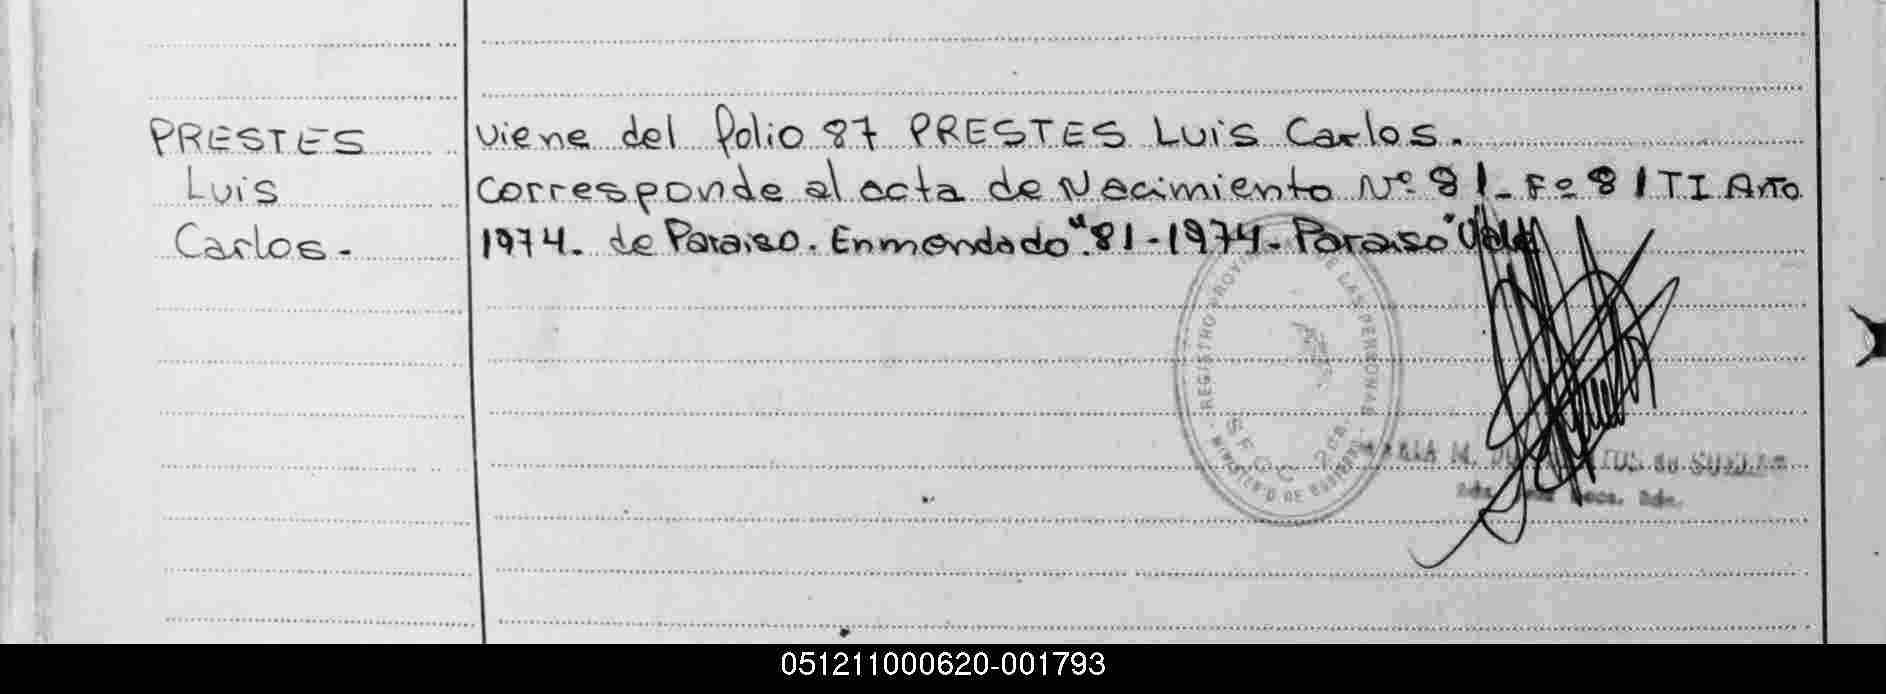 PRESTES
Luis
Carlos.-
viene del folio 87 PRESTES Luis Carlos.
Corresponde al acta de Nacimiento Nº 81-Fº 81 TI Año
1974. de Paraiso. Enmendado "81-1974-Paraiso" Vale
REGISTRO PROVIN DE LAS PERSONAS
MINISTERIO DE GOBIERNO
MARIA M.
051211000620-001793